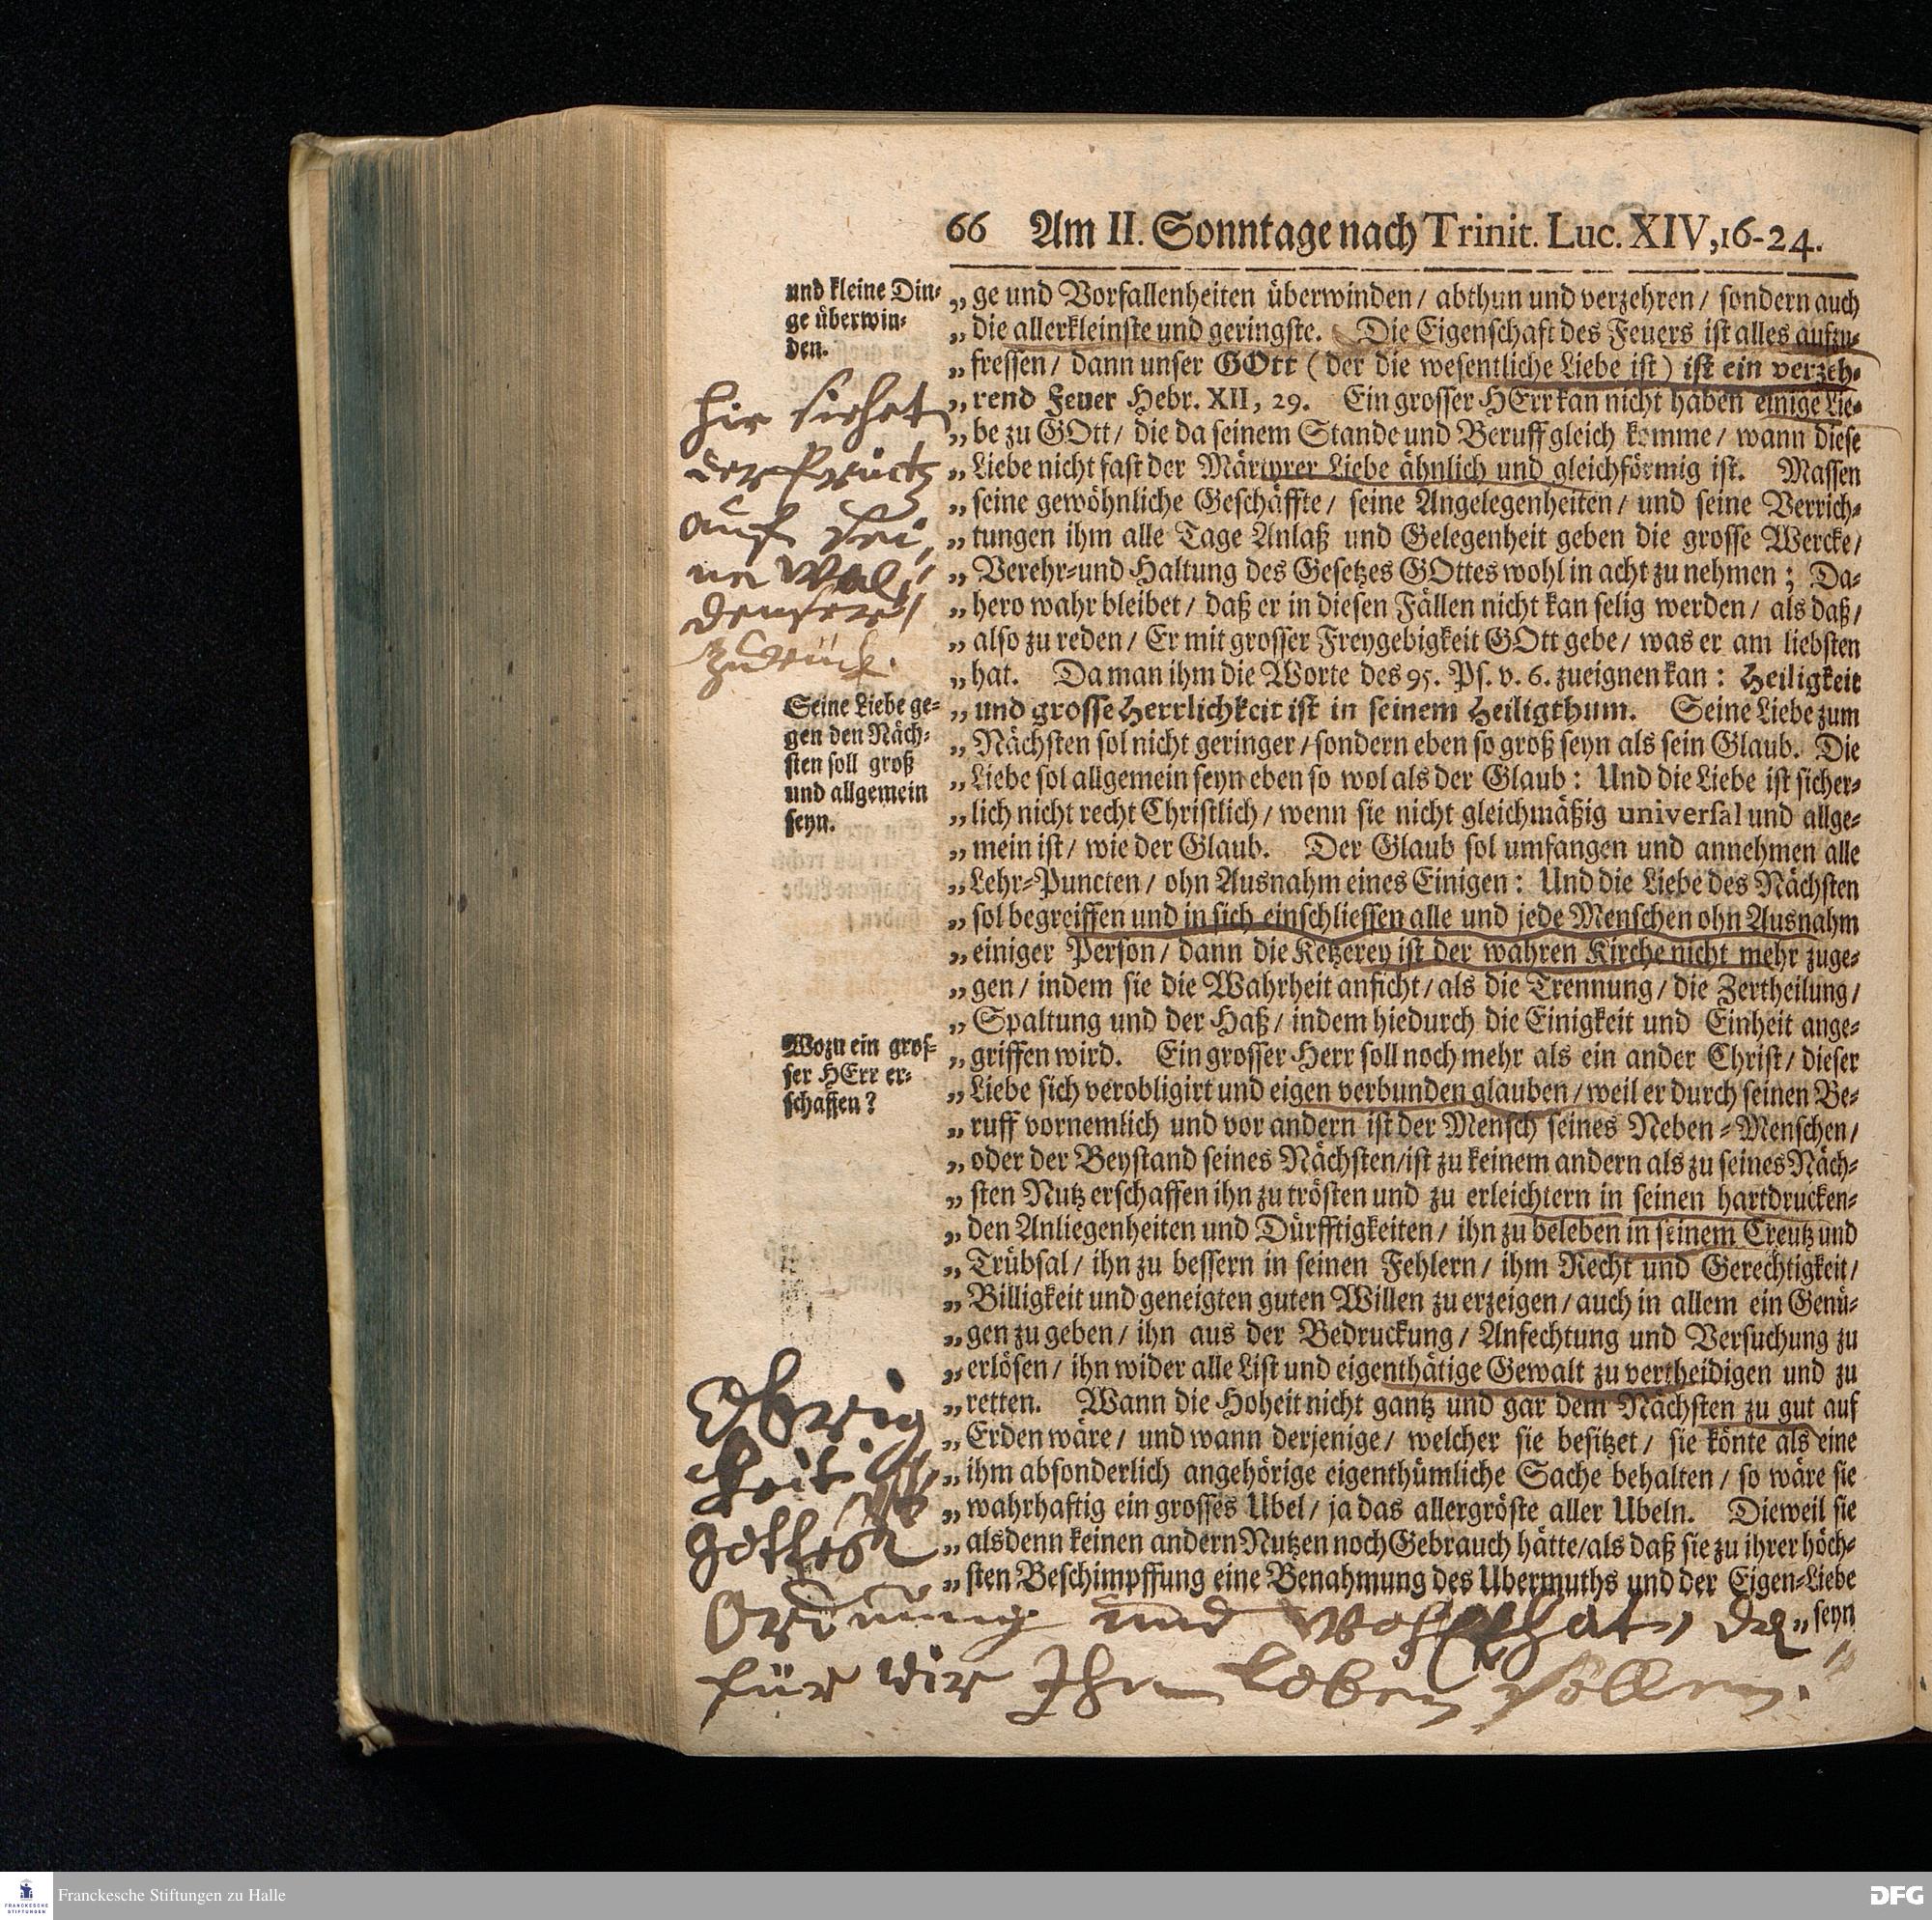 66 Am II. Sonntage nach Trinit. Luc. XIV, 16-24.
und kleine Din-
ge überwin-
den.
„ ge und Vorfallenheiten überwinden / abthun und verzehren / sondern auch
„ die allerkleinste und geringste. Die Eigenschaft des Feuers ist alles aufzu-
„ fressen / dann unser GOtt ( der die wesentliche Liebe ist ) ist ein verzeh-
„ rend Feuer Hebr. XII, 29. Ein grosser HErr kan nicht haben einige Lie-
„ be zu GOtt / die da seinem Stande und Beruff gleich komme / wann diese
„ Liebe nicht fast der Märtyrer Liebe ähnlich und gleichförmig ist. Massen
„ seine gewöhnliche Geschäffte / seine Angelegenheiten / und seine Verrich-
„ tungen ihm alle Tage Anlaß und Gelegenheit geben die grosse Wercke /
„ Verehr- und Haltung des Gesetzes GOttes wohl in acht zu nehmen ; Da-
„ hero wahr bleibet / daß er in diesen Fällen nicht kan selig werden / als daß /
„ also zu reden / Er mit grosser Freygebigkeit GOtt gebe / was er am liebsten
„ hat. Da man ihm die Worte des 95. Ps. v. 6. zueignen kan : Heiligkeit
„ und grosse Herrlichkeit ist in seinem Heiligthum. Seine Liebe zum
„ Nächsten sol nicht geringer / sondern eben so groß seyn als sein Glaub. Die
„ Liebe sol allgemein seyn eben so wol als der Glaub : Und die Liebe ist sicher-
„ lich nicht recht Christlich / wenn sie nicht gleichmäßig universal und allge-
„ mein ist / wie der Glaub. Der Glaub sol umfangen und annehmen alle
„ Lehr-Puncten / ohn Ausnahm eines Einigen : Und die Liebe des Nächsten
„ sol begreiffen und in sich einschliessen alle und jede Menschen ohn Ausnahm
„ einiger Person / dann die Ketzerey ist der wahren Kirche nicht mehr zuge-
„ gen / indem sie die Wahrheit anficht / als die Trennung / die Zertheilung /
„ Spaltung und der Haß / indem hiedurch die Einigkeit und Einheit ange-
„ griffen wird. Ein grosser Herr soll noch mehr als ein ander Christ / dieser
„ Liebe sich verobligirt und eigen verbunden glauben / weil er durch seinen Be-
„ ruff vornemlich und vor andern ist der Mensch seines Neben-Menschen /
„ oder der Beystand seines Nächsten / ist zu keinem andern als zu seines Näch-
„ sten Nutz erschaffen ihn zu trösten und zu erleichtern in seinen hartdrucken-
„ den Anliegenheiten und Dürfftigkeiten / ihn zu beleben in seinem Creutz und
„ Trübsal / ihn zu bessern in seinen Fehlern / ihm Recht und Gerechtigkeit /
„ Billigkeit und geneigten guten Willen zu erzeigen / auch in allem ein Genü-
„ gen zu geben / ihn aus der Bedruckung / Anfechtung und Versuchung zu
„ erlösen / ihn wider alle List und eigenthätige Gewalt zu vertheidigen und zu
„ retten. Wann die Hoheit nicht gantz und gar dem Nächsten zu gut auf
„ Erden wäre / und wann derjenige / welcher sie besitzet / sie könte als eine
„ ihm absonderlich angehörige eigenthümliche Sache behalten / so wäre sie
„ wahrhaftig ein grosses Ubel / ja das allergröste aller Ubeln. Dieweil sie
„ alsdenn keinen andern Nutzen noch Gebrauch hätte / als daß sie zu ihrer höch-
„ sten Beschimpffung eine Benahmung des Ubermuths und der Eigen-Liebe
„ seyn
hir siehet
auf sei,
ne Wal,
denser
zurück.
Seine Liebe ge-
gen den Näch-
sten soll groß
und allgemein
seyn.
Wozu ein gros-
ser HErr er-
schaffen ?
Obrig
keit ist
Gottes
Ordnung und Wohlthat, da
für wir Ihm loben sollen.
Franckesche Stiftungen zu Halle
FRANCKESCHE
STIFTUNGEN
DFG